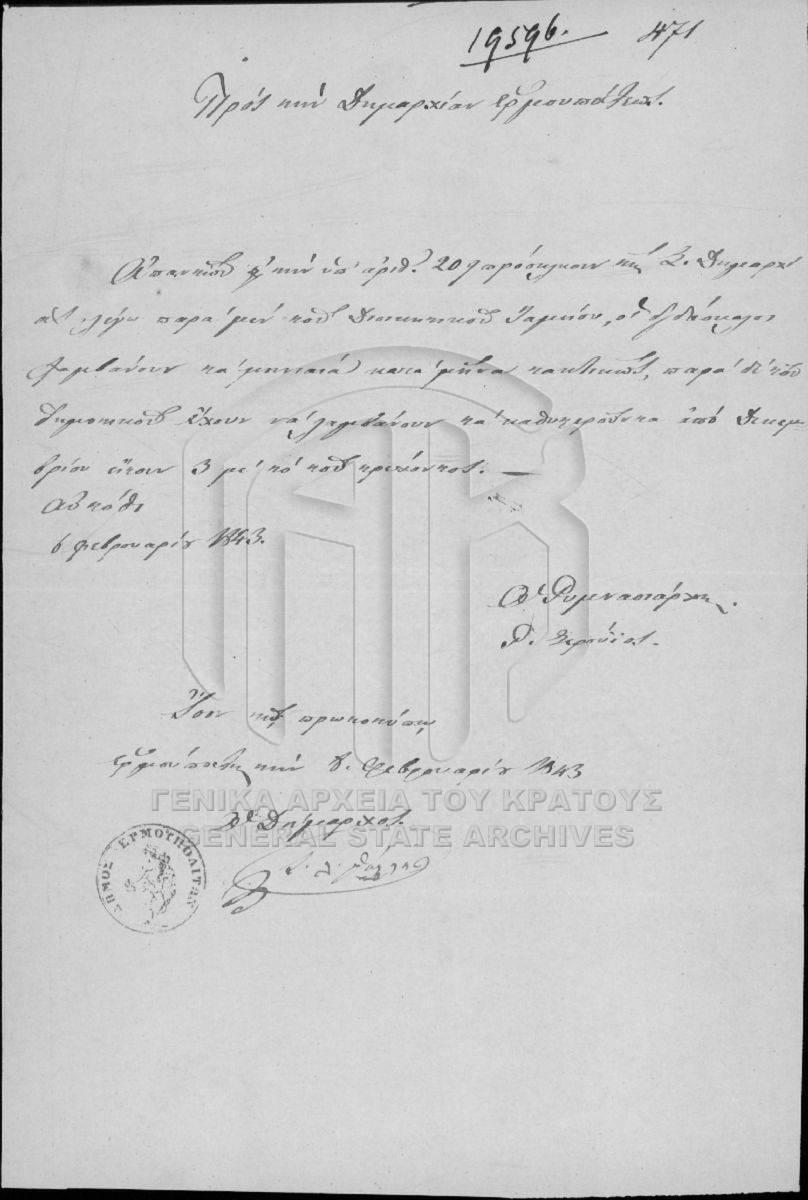 19596.
471
Πρὸς τὴν Δημαρχίαν Ἑρμουπόλεως.
Ἀπαντῶν τὴν ὑπ' ἀριθ. 209 πρόσκλησιν τῆς Σ. Δημαρχί
ας λέγω παρὰ μὲν τοῦ Διοικητικοῦ Ταμείου, οἱ διδάσκαλοι
λαμβάνουν τὰ μηνιαῖα κατὰ μῆνα τακτικῶς, παρὰ δὲ τοῦ
δημοτικοῦ ἔχουν νὰ λαμβάνουν τὰ καθυστεροῦντα ἀπὸ Δεκεμ-
βρίου 3 μὲ τὸ τοῦ τρέχοντος.
Αὐτόθι
6 Φεβρουαρίου 1843.
Ὁ Γυμνασιάρχης.
Γ. Σερούϊος.
Ἴσον τῷ πρωτοτύπῳ
Ἑρμούπολις τὴν Φεβρουαρίου 1843
Ὁ Δήμαρχος.
ΔΗΜΟΣ ΕΡΜΟΥΠΟΛΙΤΩΝ
ΓΕΝΙΚΑ ΑΡΧΕΙΑ ΤΟΥ ΚΡΑΤΟΥΣ
GENERAL STATE ARCHIVES